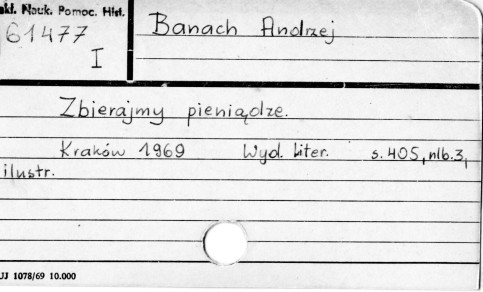 akł. Nauk. Pomoc. Hist.
61477
I
Banach Andrzej
Zbierajmy pieniądze.
Kraków 1969 Wyd. Liter. s. 405, nlb. 3,
ilustr.
UJ 1078/69 10.000